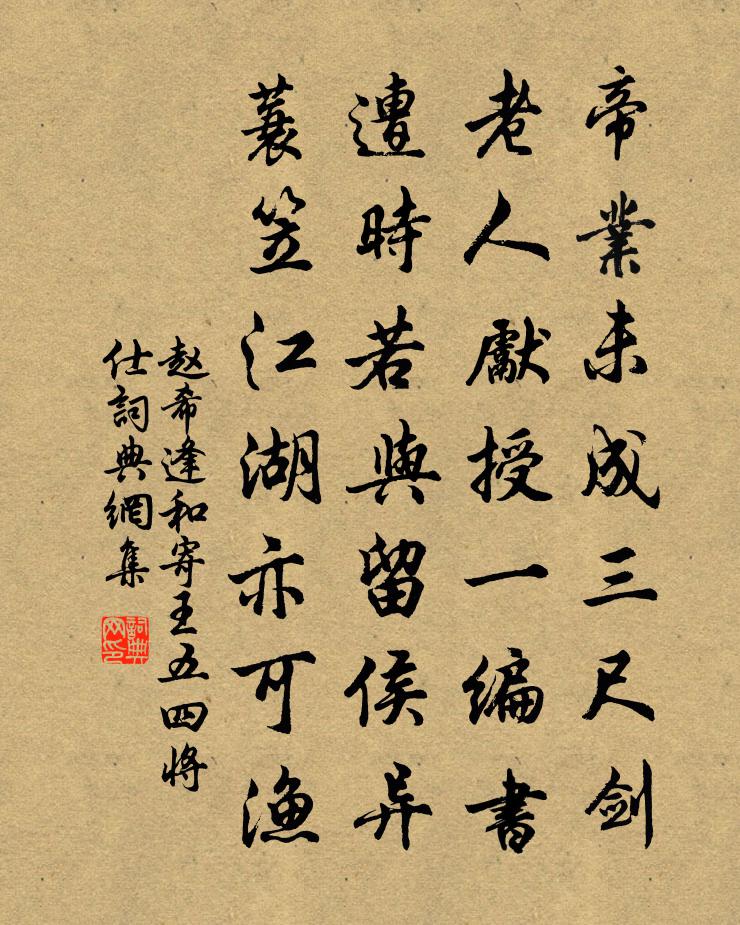 帝業未成三尺劍
老人獻授一編書
遭時若與留侯异
蓑笠江湖亦可漁
赵希逢和寄王五四將
仕詞典網集
詞典
网印